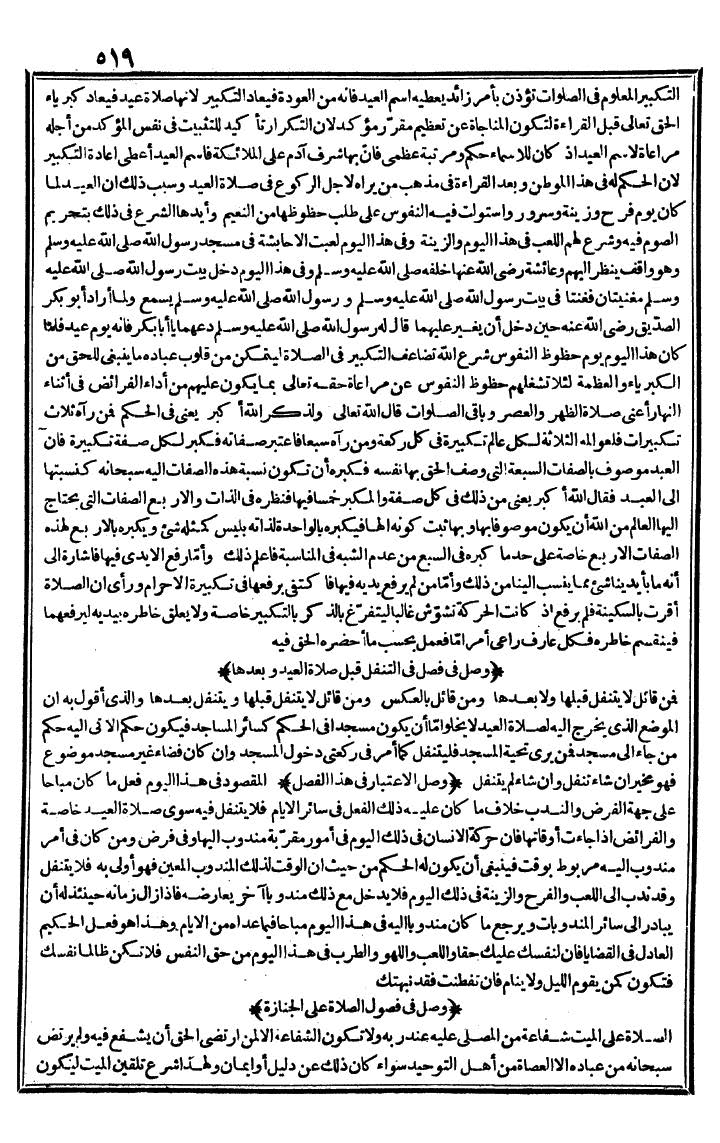 ٥١٩
التكبير المعلوم فى الصلوات تؤذن بأمر زائد يعطيه اسم العيد فانه من العودة فيعاد التكبير لانها صلاة عيد فيعاد كبرياء
الحق تعالى قبل القراءة لتكون المناجاة عن تعظيم مقرر مؤكد لان التكرار تأكيد للتثبيت فى نفس المؤكد من أجله
مراعاة لاسم العيد اذ كان للاسماء حكم ومرتبة عظمى فان بها شرف آدم على الملائكة فاسم العيد أعطى اعادة التكبير
لان الحكم له فى هذا الموطن وبعد القراءة فى مذهب من يراه لاجل الركوع فى صلاة العيد وسبب ذلك ان العيد لما
كان يوم فرح وزينة وسرور واستولت فيه النفوس على طلب حظوظها من النعيم وأيدها الشرع فى ذلك بتحريم
الصوم فيه وشرع لهم اللعب فى هذا اليوم والزينة وفى هذا اليوم لعبت الاحابشة فى مسجد رسول الله صلى الله عليه وسلم
وهو واقف ينظر اليهم وعائشة رضى الله عنها خلفه صلى الله عليه وسلم وفى هذا اليوم دخل بيت رسول الله صلى الله عليه
وسلم مغنيتان فغنتا فى بيت رسول الله صلى الله عليه وسلم ورسول الله صلى الله عليه وسلم يسمع ولما أراد أبو بكر
الصديق رضى الله عنه حين دخل أن يغير عليهما قال له رسول الله صلى الله عليه وسلم دعهما يا أبا بكر فانه يوم عيد فلما
كان هذا اليوم يوم حظوظ النفوس شرع الله تضاعف التكبير فى الصلاة ليتمكن من قلوب عباده ما ينبغى للحق من
الكبرياء والعظمة لئلا تشغلهم حظوظ النفوس عن مراعاة حقه تعالى بما يكون عليهم من أداء الفرائض فى أثناء
النهار أعنى صلاة الظهر والعصر وباقى الصلوات قال الله تعالى ولذكر الله أكبر يعنى فى الحكم فمن رآه ثلاث
تكبيرات فلعوالمه الثلاثة لكل عالم تكبيرة فى كل ركعة ومن رآه سبعا فاعتبر صفاته فكبر لكل صفة تكبيرة فان
العبد موصوف بالصفات السبعة التى وصف الحق بها نفسه فكبره أن تكون نسبة هذه الصفات اليه سبحانه كنسبتها
الى العبد فقال الله أكبر يعنى من ذلك فى كل صفة والمكبر خمسا فيها فنظره فى الذات والاربع الصفات التى يحتاج
اليها العالم من الله أن يكون موصوفا بها وبها ثبت كونه الها فيكبره بالواحدة لذاته بليس كمثله شئ ويكبره بالاربع لهذه
الصفات الاربع خاصة على حد ما كبره فى السبع من عدم الشبه فى المناسبة فاعلم ذلك وأما رفع الايدى فيها فاشارة الى
أنه ما بأيدينا شئ مما ينسب الينا من ذلك وأما من لم يرفع يديه فيها فاكتفى برفعها فى تكبيرة الاحرام ورأى ان الصلاة
أقرت بالسكينة فلم يرفع اذ كانت الحركة تشوش غالبا ليتفرغ بالذكر بالتكبير خاصة ولا يعلق خاطره بيديه ليرفعهما
فينقسم خاطره فكل عارف راعى أمرا ما فعمل بحسب ما أحضره الحق فيه
﴿وصل فى فصل فى التنفل قبل صلاة العيد وبعدها﴾
فمن قائل لا يتنفل قبلها ولا بعدها ومن قائل بالعكس ومن قائل لا يتنفل قبلها ويتنفل بعدها والذى أقول به ان
الموضع الذى يخرج اليه لصلاة العيد لا يخلو اما أن يكون مسجدا فى الحكم كسائر المساجد فيكون حكم الآتى اليه حكم
من جاء الى مسجد فمن يرى تحية المسجد فليتنفل كما أمر فى ركعتى دخول المسجد وان كان فضاء غير مسجد موضوع
فهو مخير ان شاء تنفل وان شاء لم يتنفل ﴿وصل الاعتبار فى هذا الفصل﴾ المقصود فى هذا اليوم فعل ما كان مباحا
على جهة الفرض والندب خلاف ما كان عليه ذلك الفعل فى سائر الايام فلا يتنفل فيه سوى صلاة العيد خاصة
والفرائض اذا جاءت أوقاتها فان حركة الانسان فى ذلك اليوم فى أمور مقربة مندوب اليها وفى فرض ومن كان فى أمر
مندوب اليه مربوط بوقت فينبغى أن يكون له الحكم من حيث ان الوقت لذلك المندوب المعين فهو أولى به فلا يتنفل
وقد ندب الى اللعب والفرح والزينة فى ذلك اليوم فلا يدخل مع ذلك مندوبا آخر يعارضه فاذا زال زمانه حينئذ له أن
يبادر الى سائر المندوبات ويرجع ما كان مندوبا اليه فى هذا اليوم مباحا فيما عداه من الايام وهذا هو فعل الحكيم
العادل فى القضايا فان لنفسك عليك حقا واللعب واللهو والطرب فى هذا اليوم من حق النفس فلا تكن ظالما نفسك
فتكون كمن يقوم الليل ولا ينام فان تفطنت فقد نبهتك
﴿وصل فى فصول الصلاة على الجنازة﴾
الصلاة على الميت شفاعة من المصلى عليه عند ربه ولا تكون الشفاعة الا لمن ارتضى الحق أن يشفع فيه ولم يرتض
سبحانه من عباده الا العصاة من أهل التوحيد سواء كان ذلك عن دليل أو ايمان ولهذا شرع تلقين الميت ليكون